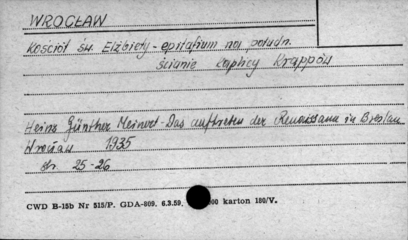 WROCŁAW
Kościół św. Elżbiety - epitafium na połudn.
ścianie kaplicy Krappów
Heinz Günther Meinert - Das auftreten der Renaissance in Breslau
Wrocław 1935
str. 25-26
CWD B-15b Nr 515/P. GDA-809. 6.3.59. 00 karton 180/V.